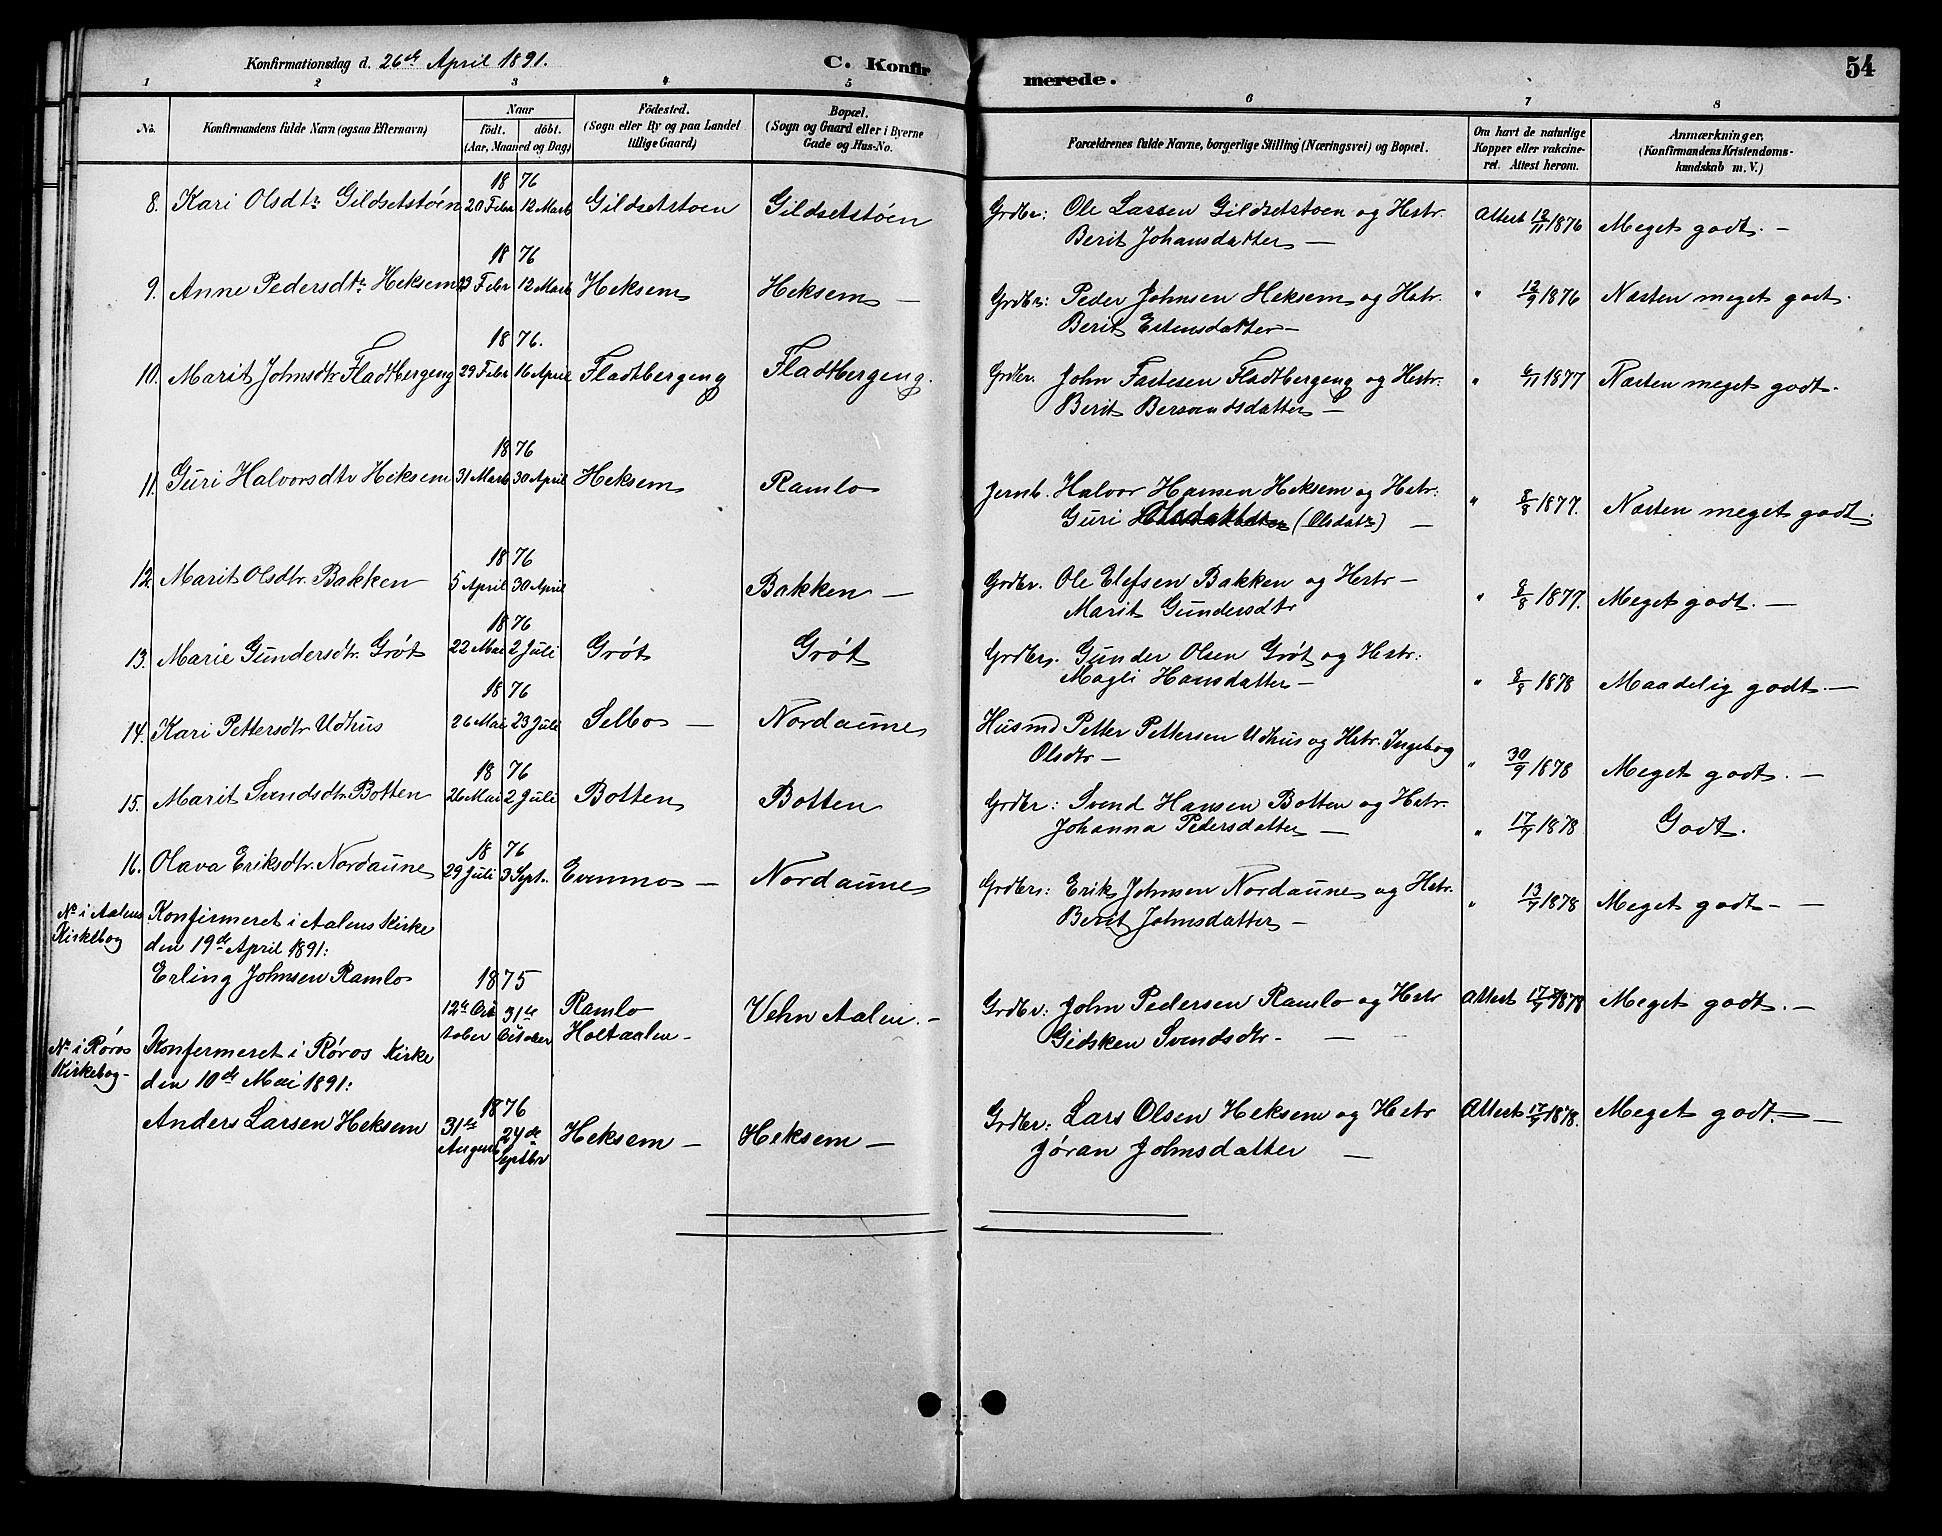 Konfirmationsdag d. 26de April 1891.
C. Konfirmerede.
54
1 2 3 4 5 6 7 8
No. Konfirmandens fulde Navn (ogsaa Efternavn) Naar födt. döbt. (Aar, Maaned og Dag) Födested. (Sogn eller By og paa Landet tillige Gaard) Bopæl. (Sogn og Gaard eller i Byerne Gade og Hus-No. Forældrenes fulde Navne, borgerlige Stilling (Næringsvei) og Bopæl. Om havt de naturlige Kopper eller vakcineret. Attest herom. Anmærkninger, (Konfirmandens Kristendomskundskab m. V.)
1876
8. Kari Olsdtr Gildsetstøen 20 Febr 12 Marts Gildsetstøen Gildsetstøen Grdbr: Ole Larsen Gildsetstøen og Hstr. Attest 12/11 1876 Meget godt. –
Berit Johansdatter –
1876
9. Anne Pedersdtr Heksem 23 Febr 12 Marts Heksem Heksem – Grdbr: Peder Johnsen Heksem og Hstr. " 12/9 1876 Næsten meget godt.
Berit Estensdatter –
1876.
10. Marit Johnsdtr Fladtbergeng 29 Febr 16 April Fladtbergeng Fladtbergeng. Grdbr. John Fastesen Fladtbergeng og Hstr. " 6/11 1877 Næsten meget godt.
Berit Bersvendsdatter –
1876
11. Guri Halvorsdtr Heksem 31 Marts 30 April Heksem Ramlo Jernb. Halvor Hansen Heksem og Hstr: " 8/8 1877. Næsten meget godt.
Guri (Olsdatr) –
1876
12. Marit Olsdtr. Bakken 5 April 30 April Bakken – Grdbr. Ole Elefsen Bakken og Hstr – " 8/8 1877. Meget godt. –
Marit Gundersdtr
1876
13. Marie Gundersdtr. Grøt 22 Mai 2 Juli Grøt Grøt Grdbr. Gunder Olsen Grøt og Hstr: " 8/8 1878 Maadelig godt. –
Magli Hansdatter –
1876
14. Kari Pettersdtr Udhus 26 Mai 23 Juli Selbo – Nordaune Husmd Petter Pettersen Udhus og Hstr. Ingebog " 30/9 1878 Meget godt. –
Olsdtr –
1876
15. Marit Svendsdtr Botten 26 Mai 2 Juli Botten Botten Grdbr: Svend Hansen Botten og Hstr. " 17/9 1878 Godt.
Johanna Pedersdatter –
1876
16. Olava Eriksdtr. Nordaune 29 Juli 3 Sept. Evenmo – Nordaune Grdbr: Erik Johnsen Nordaune og Hstr. " 13/9 1878 Meget godt – –
Berit Johnsdatter –
No i Aalens Kirkebog Konfirmeret i Aalens Kirke
den 19de April 1891:
Erling Johnsen Ramlo 1875
12te October 31te October Ramlo Holtaalen – Vehn Aalen. – Grdbr: John Pedersen Ramlo og Hstr Attest 17/9 1878 Meget godt. –
Gidsken Svendsdtr. –
No i Røros Kirkebog – Konfermeret i Røros Kirke
den 10de Mai 1891:
1876
Anders Larsen Heksem 31te August 24de Septbr Heksem – Heksem – Grdbr: Lars Olsen Heksem og Hstr Attest 17/9 1878. Meget godt. –
Jøran Johnsdatter –